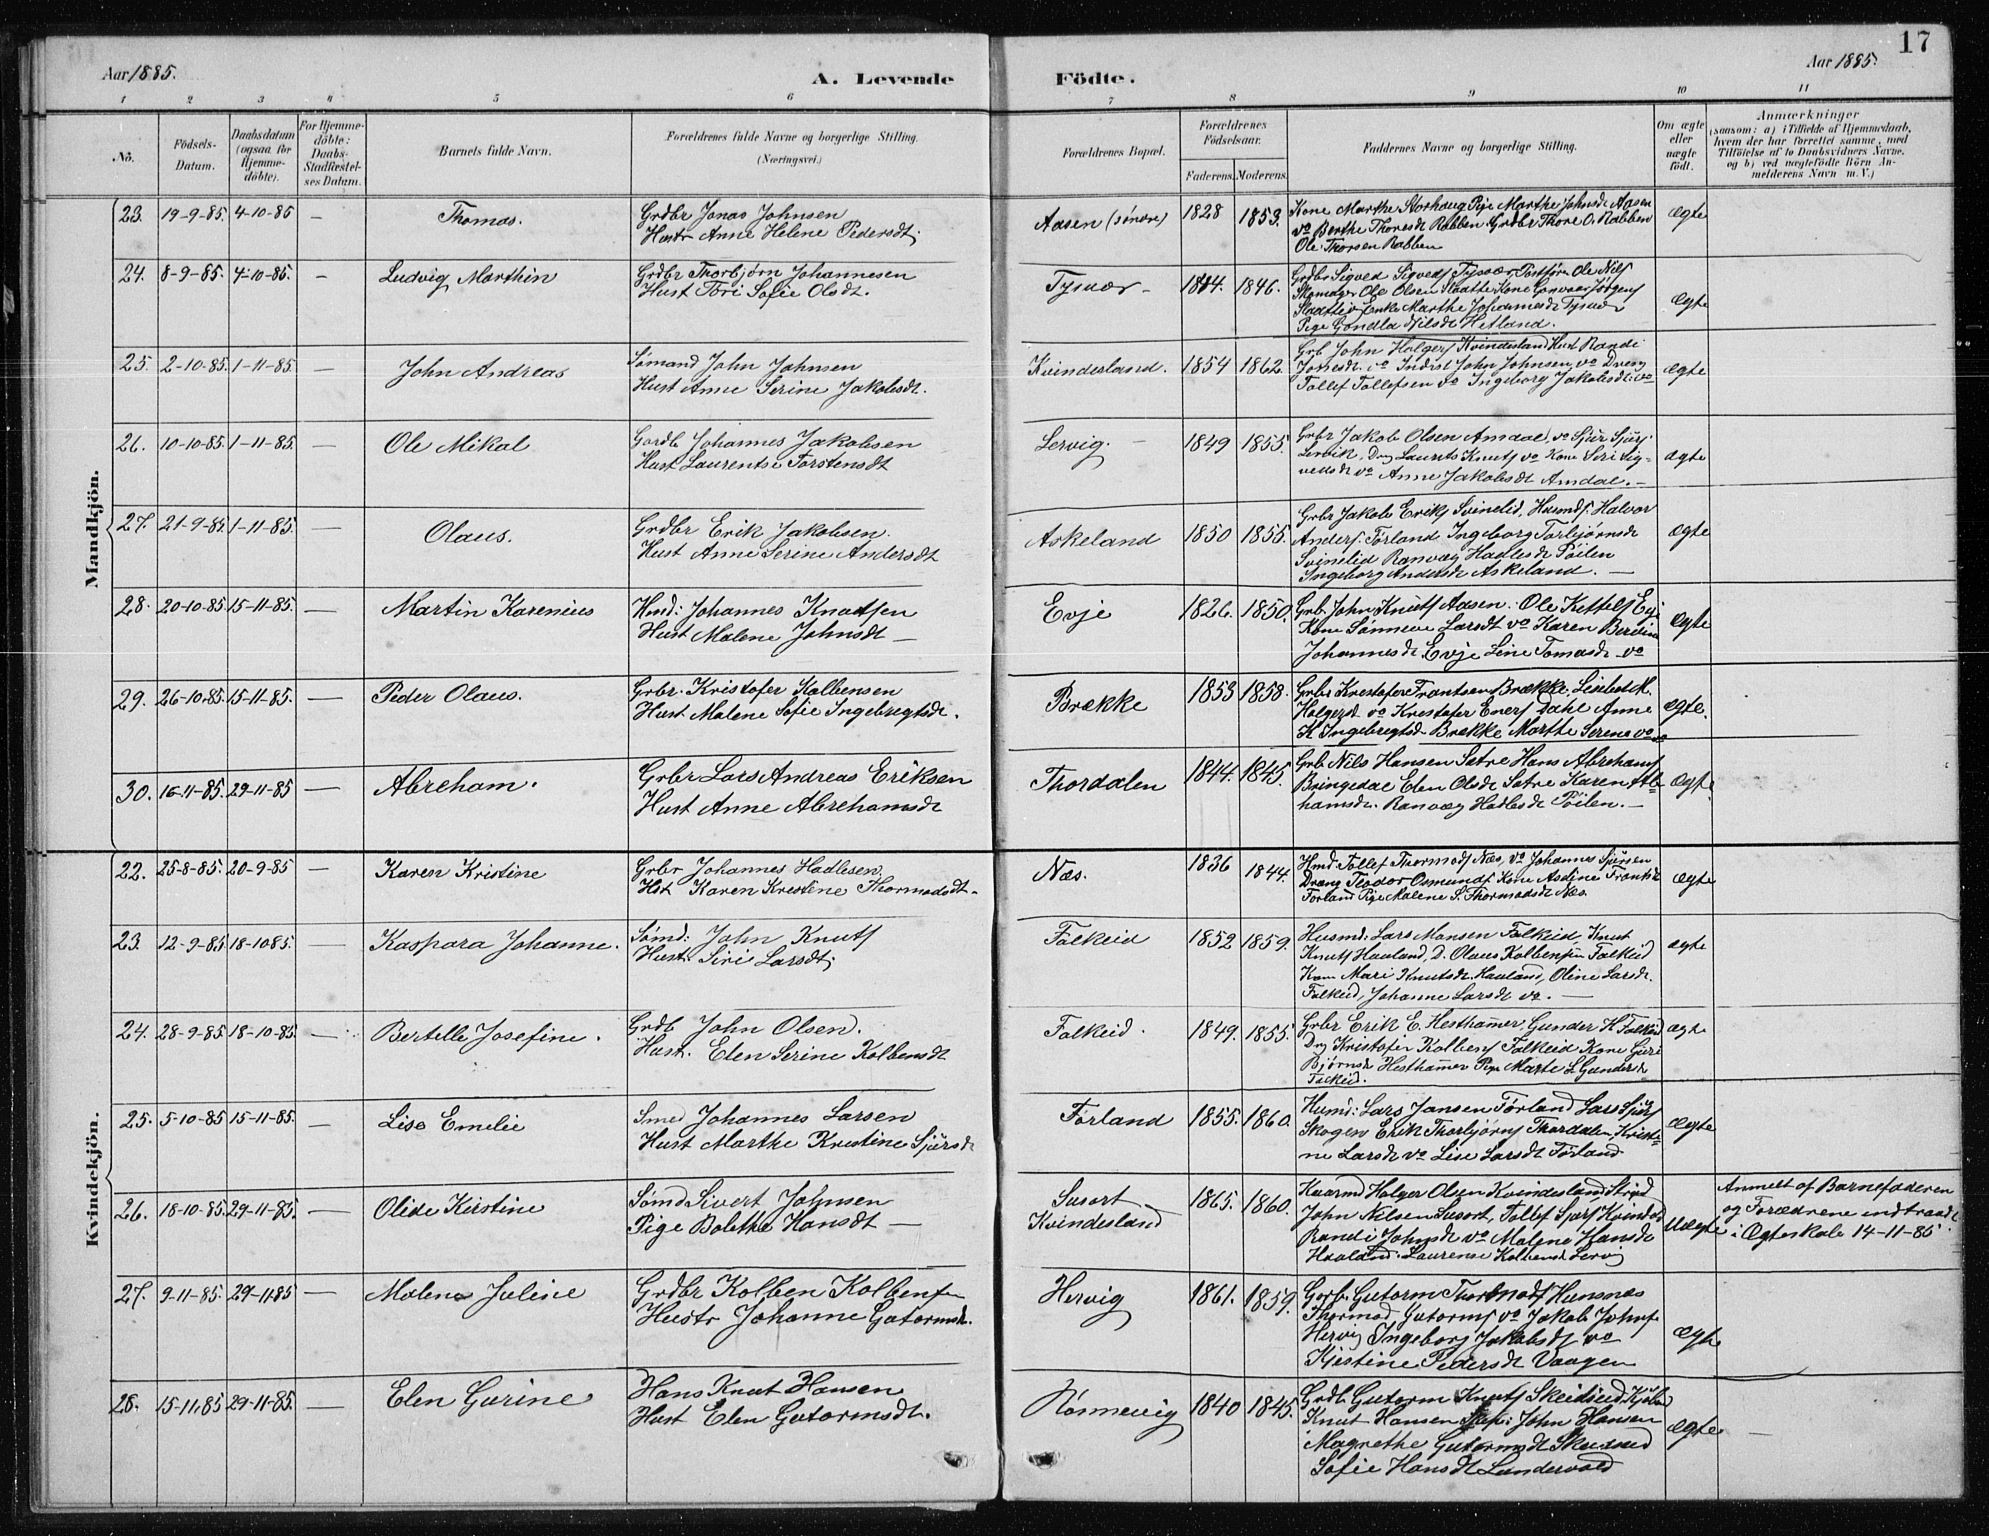 17
Aar 1885.
A. Levende
Födte.
Aar 1885.
1 2 3 4 5 6 7 8 9 10 11
No.
Födsels-Datum.
Daabsdatum (ogsaa for Hjemme-döbte).
For Hjemme-döbte: Daabs-Stadfæstel-ses Datum.
Barnets fulde Navn.
Forældrenes fulde Navne og borgerlige Stilling. (Næringsvei.)
Forældrenes Bopæl.
Forældrenes Födselsaar.
Faderens. Moderens.
Faddernes Navne og borgerlige Stilling.
Om ægte eller uægte födt.
Anmærkninger
(saasom: a) i Tilfælde af Hjemmedaab, hvem der har forrettet samme, med Tilföielse af to Daabsvidners Navne, og b) ved uægtefödte Börn An-melderens Navn m. V.)
Mandkjön.
23. 19-9-85. 4-10-85 — Thomas. Grdbr Jonas Johnsen
Hustr Anne Helene Pedersdt.
Aasen (søndre) 1828 1853. Kone Marthe Storhaug Pige Marthe Johnsdt Aasen
vo Berthe Thoresdt Rabben Grdbr Thore O. Rabben
Ole Thorsen Rabben
ægte
24. 8-9-85. 4-10-85. — Ludvig Marthin Grdbr Thorbjørn Johannesen
Hust Tori Sofie Olsdt.
Tysvær 1846. Grdbr Sigved Sigveds Tysvær, Postfører Ole Nils
Skomager Ole Olsen Slaatte Kone
Enke Marthe Johannesdt Tysvær
Pige Gondla Nilsdt Hetland.
ægte
25. 2-10-85. 1-11-85. — John Andreas Sømand John Johnsen
Hust Anne Serine Jakobsdt.
Kvindesland. 1854 1862. Grb John Holgers Kvindesland Hust Randi
Jonesdt. vo Indrst John Johnsen vo Dreng
Tollef Tollefsen vo Ingeborg Jakobsdt. vo
ægte
26. 10-10-85. 1-11-85. — Ole Mikal Gardb Johannes Jakobsen
Hust Laurentse Torstensdt
Lervig. 1849 1855. Grbr Jakob Olsen Amdal, vo Sjur Sjurs
Lervik, Drng Laurits Knuts vo Kone Seri Sig-
vedsdt vo Anne Jakobsdt Amdal.
ægte
27. 21-9-85. 1-11-85. — Olaus. Grdbr Erik Jakobsen.
Hust Anne Serine Andersdt
Askeland 1850 1855. Grbr Jakob Eriks Svinelid, Husmd: Halvor
Anders. Førland Ingeborg Torbjørnsdt
Svinelid Ranvæg Hadlesdt Pøilen
Ingeborg Andersdt Askeland.
ægte
28. 20-10-85. 15-11-85. — Martin Karenius Hmd: Johannes Knudsen
Hust Malene Johnsdt
Evje 1826. 1850. Grb. John Knuts Aasen. Ole Kittels Evj
Kone Sønneve Larsdt vo Karen Berdine
Johannesdt Evje Line Tomasdt vo
ægte
29. 26-10-85. 15-11-85. — Peder Olaus. Grbr. Kristofer Kolbensen
Hust Malene Sofie Ingebregtsdt.
Brække 1853 1858. Grbr Krestofer Frantsen Brække, Lisebet M.
Holgersdt vo Krestofer Eners Dahl Anne
K Ingebregtsdt Brække Marthe Serene vo
ægte.
30. 16-11-85. 29-11-85 — Abreham. Grbr Lars Andreas Eriksen
Hust Anne Abrehamsdt
Thordalen 1844. 1845. Grb Nils Hansen Satre Hans Abrehams
Bringedal Elen Olsdt Satre Karen Abre
hamsdt. Ranvæg Hadlesdt Pøilen.
ægte
Kvindekjön.
22. 25-8-85. 20-9-85 — Karen Kristine Grbr Johannes Hadlesen.
Hst Karen Krestine Thormodsdt.
Næs. 1836 1844. Hmd Tollef Thormods Næs, vo Johannes Sjursen
Dreng Teodor Osmunds. Kone Asdine Franksdt
Førland Pige Malene S. Thormodsdt Næs.
ægte
23. 12-9-85 18-10 85. — Kaspara Johanne. Sømd: John Knuts
Hust: Siri Larsdt.
Falkeid 1852 1859. Husmd: Lars Monsen Falkeid, Knut
Knuts Haaland, D. Olaus Kolbensen Falkeid
Kone Mari Knutsdt. Haaland, Oline Larsdt.
Falkeid, Johanne Larsdt vo.
ægte
24. 28-9-85. 18-10-85. — Bertelle Josefine. Grdb John Olsen.
Hust. Elen Serine Kolbensdt
Falkeid. 1849. 1855. Grbr Erik E. Hesthamer, Gunder H. Falkeid
Drg Kristofer Kolbens Falkeid Kone Guri
Bjørnsdt Hesthamer Pige Marte L. Gundersdt
Falkeid.
ægte
25. 5-10-85 15-11-85. — Lise Emelie Smed Johannes Larsen
Hust Marthe Kristine Sjursdt
Førland 1855. 1860. Husmd: Lars Jansen Førland Lars Sjurs
Skogen Erik Thorbjørns Thordalen, Kristi-
ne Larsdt vo Lise Larsdt Førland
ægte
26. 18-10-85. 29-11-85. — Olide Kirstine Sømd Sivert Johnsen
Pige Bolethe Hansdt
Susort
Kvindesland 1865. 1860. Kaarmd Holger Olsen Kvindesland
John Nilsen Susort, Tollef Sjurs Kvindesld
Randi Johnsdt vo Malene Hansdt
Haaland. Laurense Kolbensdt Lervig
Uægte Anmelt af Barnefaderen
og Forældrene indtraadt
i Ægteskab 14-11-85.
27. 9-11-85. 29-11-85 — Malene Juline Grdbr Kolben Kolbensen
Hustr Johanne Gutormsdt.
Hervig 1861. 1859. Gbrb. Gutorm Thormods Hunsnes
Thormod Gutorms vo Jakob Johns
Hervig Ingeborg Jakobsdt vo
Kjestine Pedersdt Vaagen
ægte
28. 15-11-85 29-11-85. — Elen Gurine Hans Knut Hansen
Hust Elen Gutormsdt.
Rønnevig 1840 1845. Grdb. Gutorm Knuts Skeidseid
Knut Hansen John Hansen
Magrethe Gutormsdt Skeidseid
Sofie Hansdt Lundervold
ægte